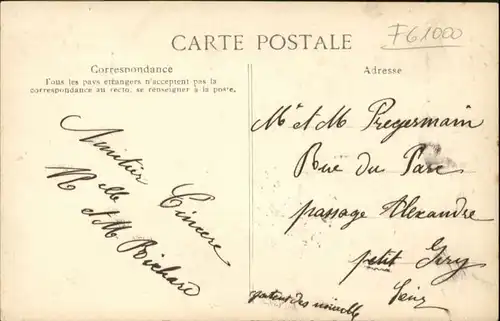 F61000
CARTE POSTALE
Correspondance
Tous les pays étrangers n'acceptent pas la
correspondance au recto, se renseigner à la poste.
Adresse
Amitier Cincere
Melle
et M Richard
Mr et M Pregermain
Rue du Parc
passage Alexandre
petit Ivry
Seine